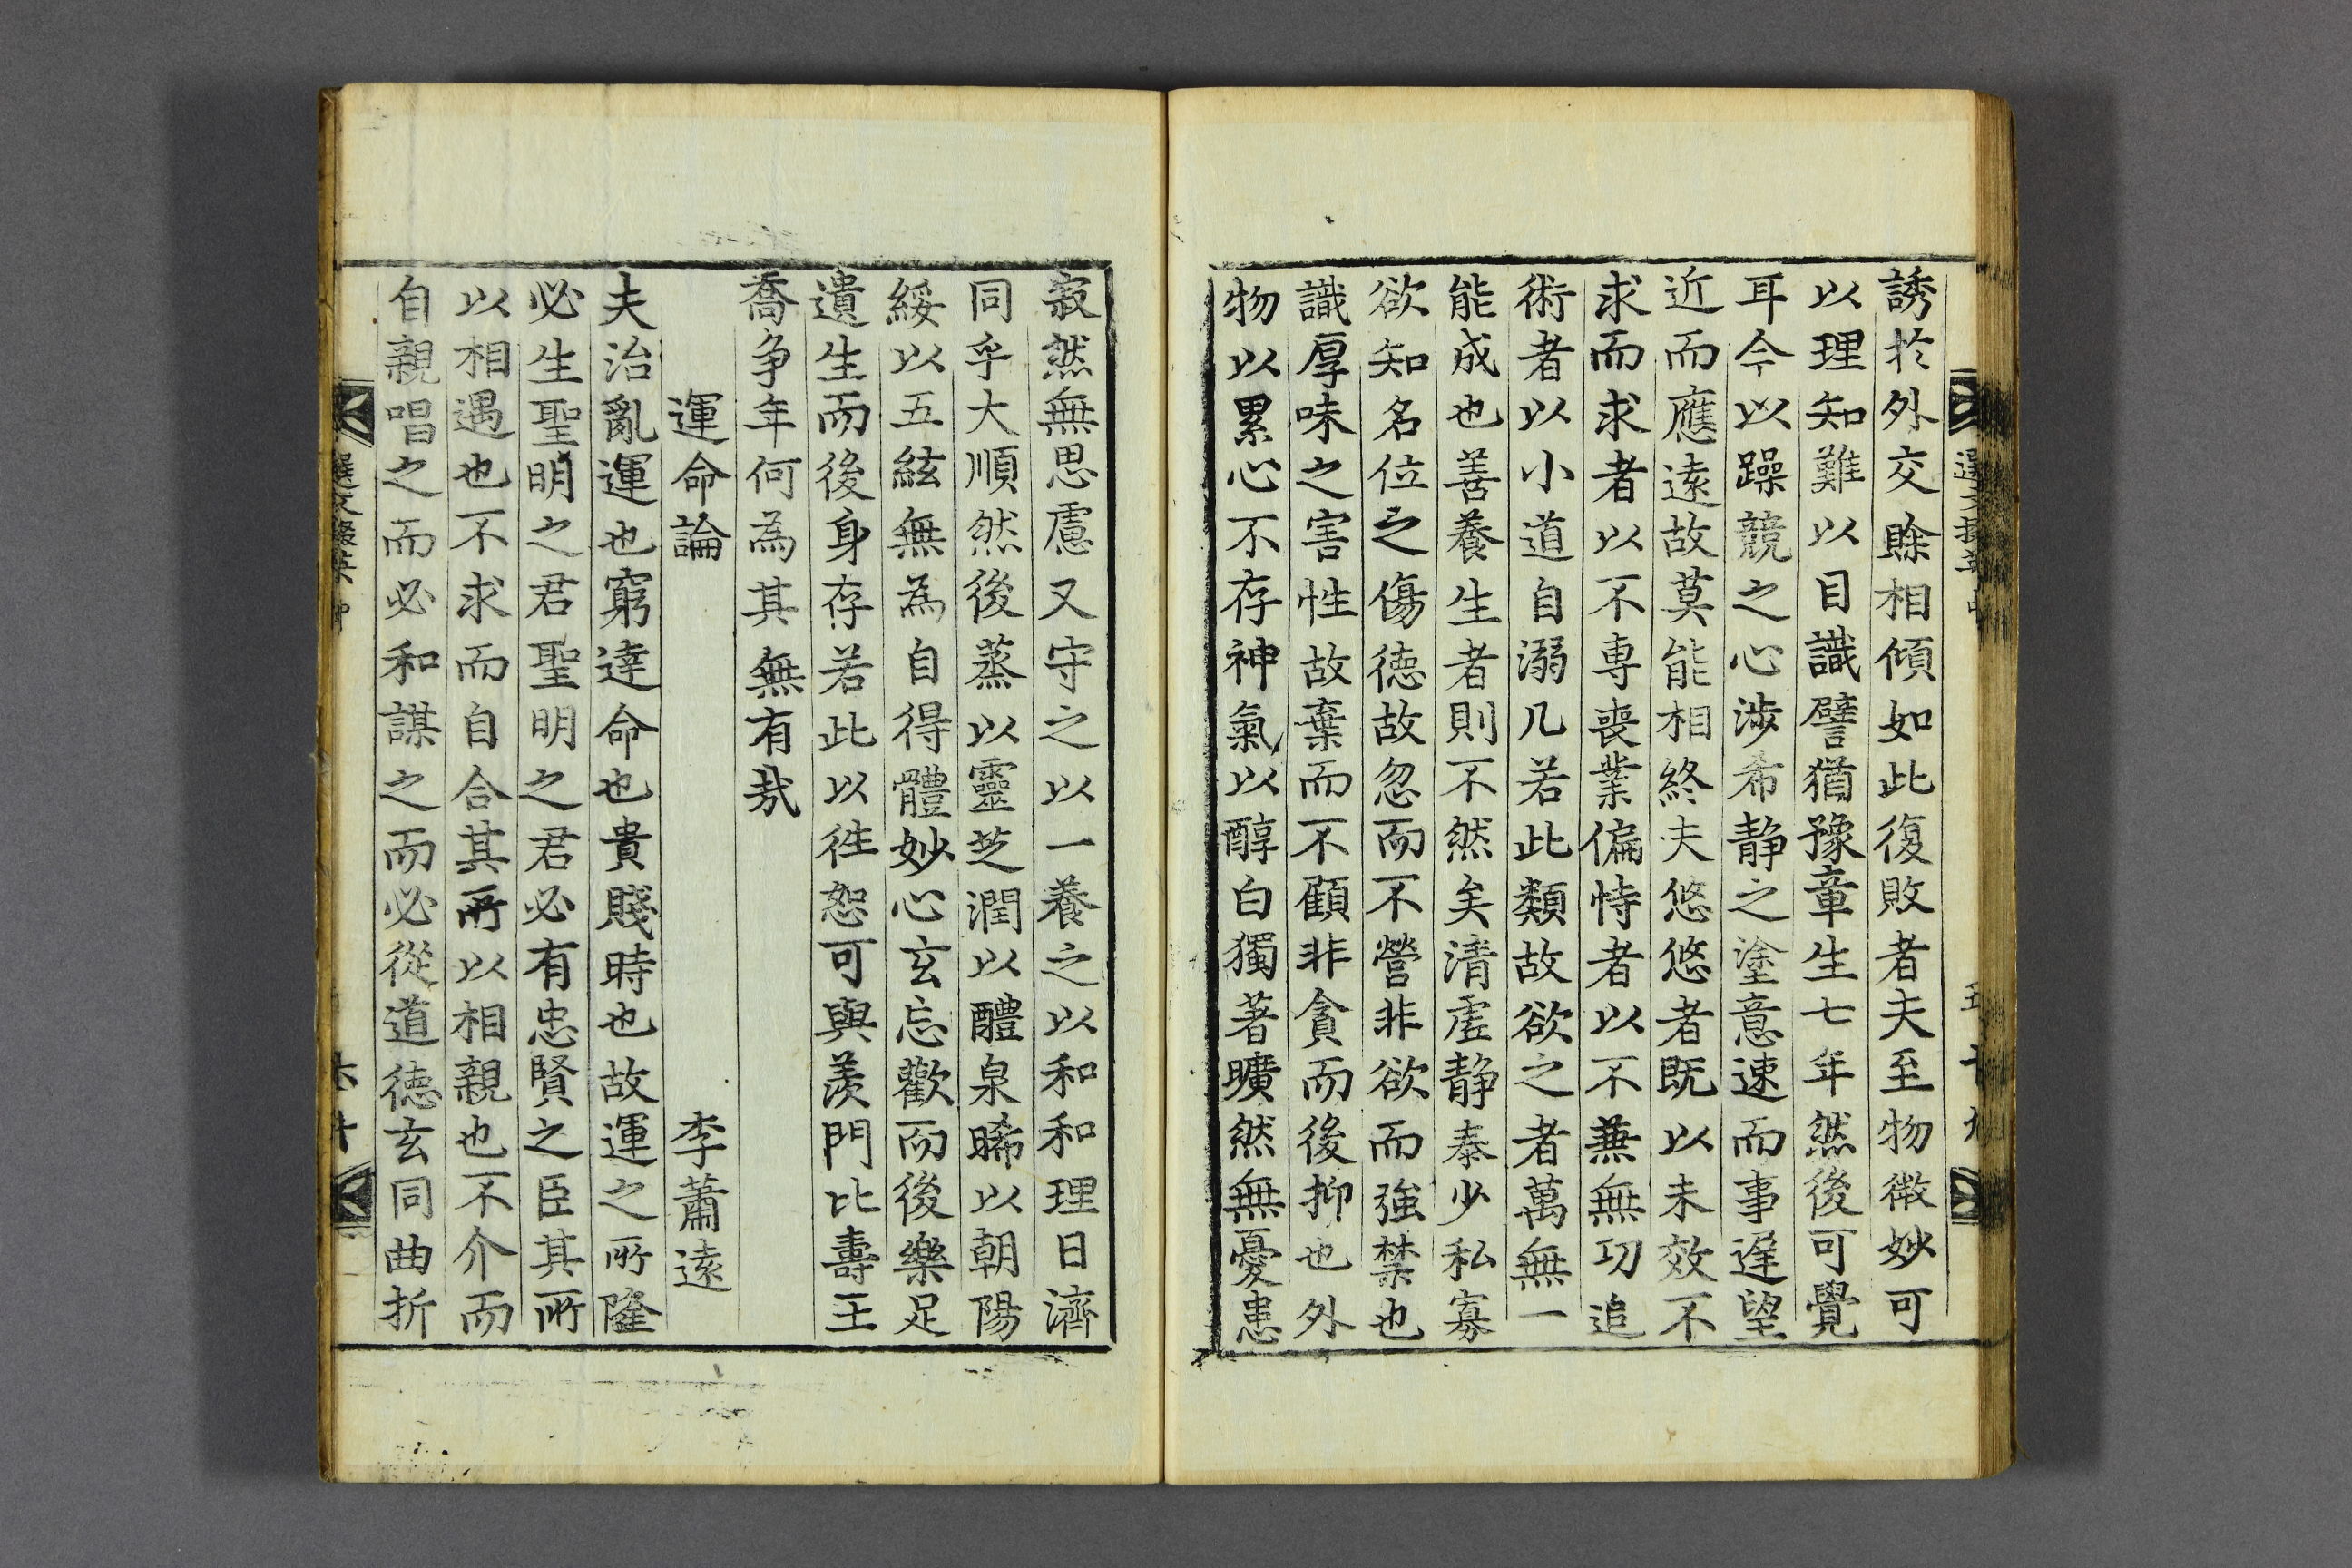 誘扵外交賖相傾如此復敗者夫至物微妙可
以理知難以目識譬猶豫章生七年然後可覺
耳今以躁競之心渉希静之塗意速而事遅望
近而應逺故莫能相終夫悠悠者既以未效不
求而求者以不専喪業偏恃者以不兼無功追
術者以小道自溺凡若此類故欲之者萬無一
能成也善養生者則不然矣清虚静泰少私寡
欲知名位之傷徳故忽而不營非欲而強禁也
識厚味之害性故棄而不顧非貪而後抑也外
物以累心不存神氣以醇白獨著曠然無憂患
寂然無思慮又守之以一養之以和和理日濟
同乎大順然後蒸以靈芝潤以醴泉晞以朝陽
綏以五絃無為自得體妙心玄忘歡而後樂足
遺生而後身存若此以徃恕可與羡門比壽王
喬争年何為其無有㦲
運命論 李蕭逺
夫治亂運也窮逹命也貴賤時也故運之所隆
必生聖明之君聖明之君必有忠賢之臣其所
以相遇也不求而自合其所以相親也不介而
自親唱之而必和謀之而必從道徳玄同曲折